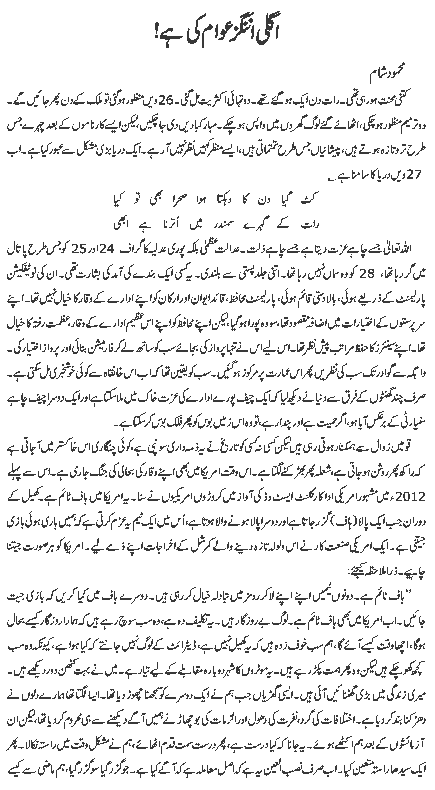 اگلی اننگز عوام کی ہے!
محمود شام
کتنی محنت ہو رہی تھی۔ رات دن ایک ہو گئے تھے۔ دو تہائی اکثریت مل گئی۔ 26 ویں منظور ہو گئی تو ملک کے دن پھر جائیں گے۔
وہ ترمیم منظور ہو چکی، اٹھائے گئے لوگ گھروں میں واپس ہو چکے۔ مبارکبادیں دی جا چکیں، لیکن ایسے کارناموں کے بعد چہرے جس
طرح تر و تازہ ہوتے ہیں، پیشانیاں جس طرح تمتماتی ہیں، ایسے منظر کہیں نظر نہیں آ رہے۔ ایک دریا بڑی مشکل سے عبور کیا ہے۔ اب
27 ویں دریا کا سامنا ہے
کٹ گیا دن کا دہکتا ہوا صحرا بھی تو کیا
رات کے گہرے سمندر میں اترنا ہے ابھی
اللہ تعالیٰ جسے چاہے عزت دیتا ہے جسے چاہے ذلت۔ عدالت عظمٰی بلکہ پوری عدلیہ کا گراف 24 اور 25 کو جس طرح پاتال
میں گر رہا تھا، 28 کو وہ سماں نہیں رہا تھا۔ اتنی جلد پستی سے بلندی۔ یہ کسی ایک بندے کی آمد کی بشارت تھی۔ ان کی نوٹیفکیشن
پارلیمنٹ کے ذریعے ہوئی، بالادستی قائم ہوئی، پارلیمنٹ محافظ، قائد ایوان اور ارکان کو اپنے ادارے کے وقار کا خیال نہیں تھا۔ اپنے
سرپرستوں کے اختیارات میں اضافہ مقصود تھا، سو وہ پورا ہو گیا، لیکن اپنے محافظ کو اپنے اس عظیم ادارے کے وقار، عظمت رفتہ کا خیال
تھا۔ اپنے سینئرز کا حفظ مراتب پیش نظر تھا۔ اس لیے اس نے تنہا پرواز کی بجائے سب کو ساتھ لے کر فارمیشن بنائی اور پرواز اختیار کی۔
واہگہ سے گوادر تک سب کی نظریں پھر اس عمارت پر مرکوز ہو گئیں۔ سب کو یقین تھا کہ اب اس خانقاہ سے کوئی خوشخبری مل سکتی ہے۔
صرف چند گھنٹوں کے فرق سے دنیا نے دیکھ لیا کہ ایک چیف پورے ادارے کی عزت خاک میں ملا سکتا ہے اور ایک دوسرا چیف چاہے
سنیارٹی کے برعکس آیا ہو، اگر حمیت ہے اور پندار ہے، تو وہ اس زمیں بوس کو پھر فلک بوس کر سکتا ہے۔
قومیں زوال سے ہمکنار ہوتی رہی ہیں لیکن کسی نہ کسی کو تاریخ نے یہ ذمہ داری سونپی ہے، کوئی چنگاری اس خاکستر میں آ جاتی ہے
کہ راکھ پھر روشن ہو جاتی ہے، شعلہ پھر بھڑکنے لگتا ہے۔ اس وقت امریکا میں بھی اپنے وقار کی بحالی کی جنگ جاری ہے۔ اس سے پہلے
2012ء میں مشہور امریکی اداکار کلنٹ ایسٹ وڈ کی آواز میں کروڑوں امریکیوں نے سنا۔ یہ امریکا میں ہاف ٹائم ہے۔ کھیل کے
دوران جب ایک پالا (ہاف) گزر جاتا ہے اور دوسرا پالا ہونے والا ہوتا ہے، اس میں ایک ٹیم یہ عزم کرتی ہے کہ ہمیں ہاری ہوئی بازی
جیتنی ہے۔ ایک امریکی صنعت کار نے اس ولولہ تازہ دینے والے کمرشل کے اخراجات اپنے ذمے لیے۔ امریکا کو ہر صورت جیتنا
چاہیے۔ ذرا ملاحظہ کیجئے:
’’ہاف ٹائم ہے۔ دونوں ٹیمیں اپنے اپنے لاکر رومز میں تبادلہ خیال کر رہی ہیں۔ دوسرے ہاف میں کیا کریں کہ بازی جیت
جائیں۔ اب امریکا میں بھی ہاف ٹائم ہے۔ لوگ بے روزگار ہیں۔ یہ تکلیف دہ ہے، وہ سب سوچ رہے ہیں کہ ہمارا روزگار کیسے بحال
ہوگا، اچھا وقت کیسے آئے گا، ہم سب خوف زدہ ہیں کہ یہ کھیل نہیں ہے، ڈیٹرائٹ کے لوگ نہیں جانتے کہ کیا ہوا ہے، کیونکہ وہ سب
کچھ کھو چکے ہیں لیکن وہ پھر ہمت پکڑ رہے ہیں۔ یہ موٹروں کا شہر دوبارہ مقابلے کے لیے تیار ہے۔ میں نے بہت کٹھن دور دیکھے ہیں۔
میری زندگی میں بڑی گھٹنائیں آئی ہیں۔ ایسی گھڑیاں جب ہم نے ایک دوسرے کو سمجھنا چھوڑ دیا تھا۔ ایسا لگتا تھا ہمارے دلوں نے
دھڑکنا بند کر دیا ہے۔ اختلافات کی گرد، نفرت کی دھول اور الزامات کی بوچھاڑ نے ہمیں آگے دیکھنے سے ہی محروم کر دیا تھا، لیکن ان
آزمائشوں کے بعد ہم اکٹھے ہوئے۔ یہ جانا کہ کیا درست ہے، پھر درست سمت قدم اٹھائے، ہم نے مشکل وقت میں راستہ نکالا۔ پھر
ایک سیدھا راستہ متعین کیا۔ اب صرف نصب العین یہ ہے کہ اصل معاملہ ہے کہ آگے کیا ہے۔ جو گزر گیا سو گزر گیا، ہم ماضی سے کیسے